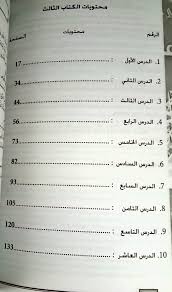 محتويات الكتاب الثالث
الرقم محتويات الصفحة
1. الدرس الأول : 17
2. الدرس الثاني : 34
3. الدرس الثالث : 44
4. الدرس الرابع : 56
5. الدرس الخامس : 73
6. الدرس السادس : 82
7. الدرس السابع : 93
8. الدرس الثامن : 105
9. الدرس التاسع : 120
10. الدرس العاشر : 133